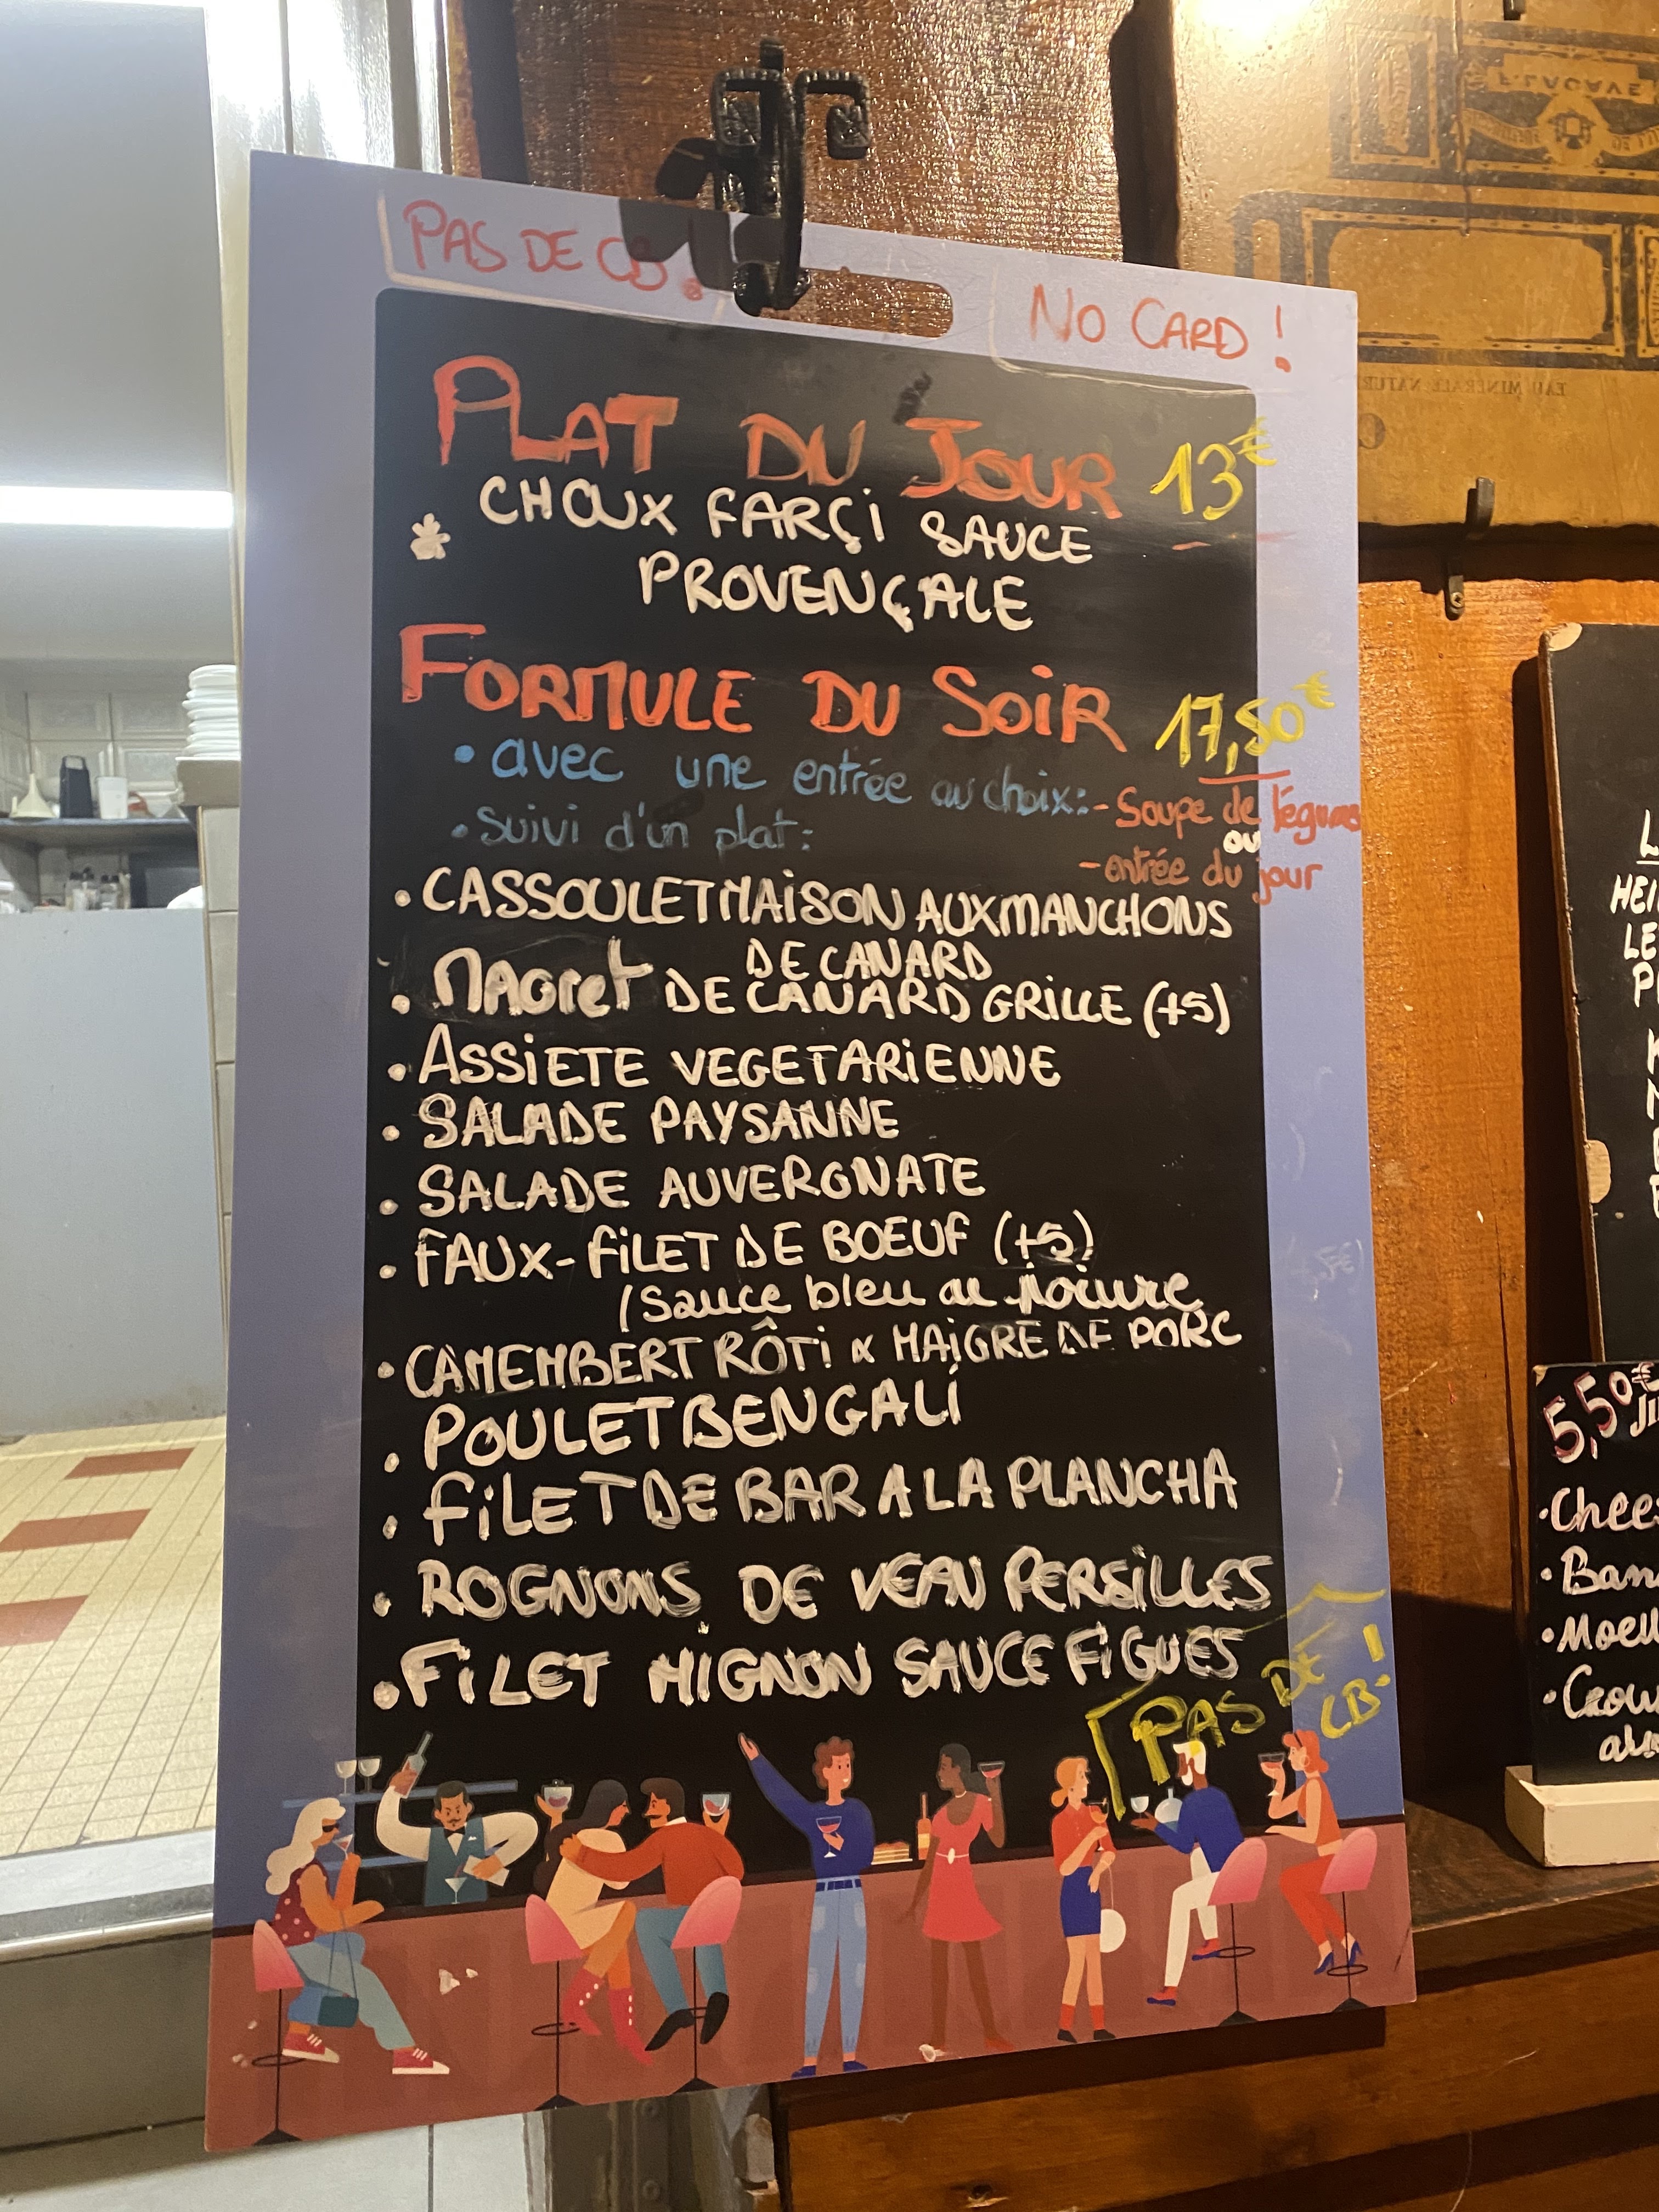 PAS DE CB !
NO CARD !
PLAT DU JOUR 13€
CHOUX FARÇi SAUCE
PROVENÇALE
FORMULE DU SOIR 17,50€
• avec une entrée au choix: - Soupe de légumes
ou
- entrée du jour
• Suivi d'un plat:
• CASSOULET MAiSON AUX MANCHONS
DE CANARD
• MAGret DE CANARD GRiLLE (+5)
• ASSiETE VEGETARiENNE
• SALADE PAYSANNE
• SALADE AUVERGNATE
• FAUX-FiLET DE BOEUF (+5)
(Sauce bleu au
• CAMEMBERT RÔTi & MAiGRE DE PORC
• POULET BENGALi
• FiLET DE BAR A LA PLANCHA
• ROGNONS DE VEAU PERSiLLES
• FiLET MIGNON SAUCE FiGUES
PAS DE
CB !
F. LACAVE
EAU MINERALE NATUR
L
HEI
LE
P
5,50€
• Chees
• Ban
• Moell